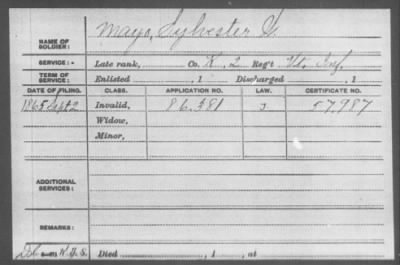 NAME OF SOLDIER: Mayo, Sylvester G.
SERVICE: Late rank, Co. K, 2 Reg't Vt. Inf.
TERM OF SERVICE: Enlisted , 1 Discharged , 1
DATE OF FILING. CLASS. APPLICATION NO. LAW. CERTIFICATE NO.
1865 Sept 2 Invalid, 86.381 57.987
Widow,
Minor,
ADDITIONAL SERVICES:
REMARKS:
Died , 1 , at